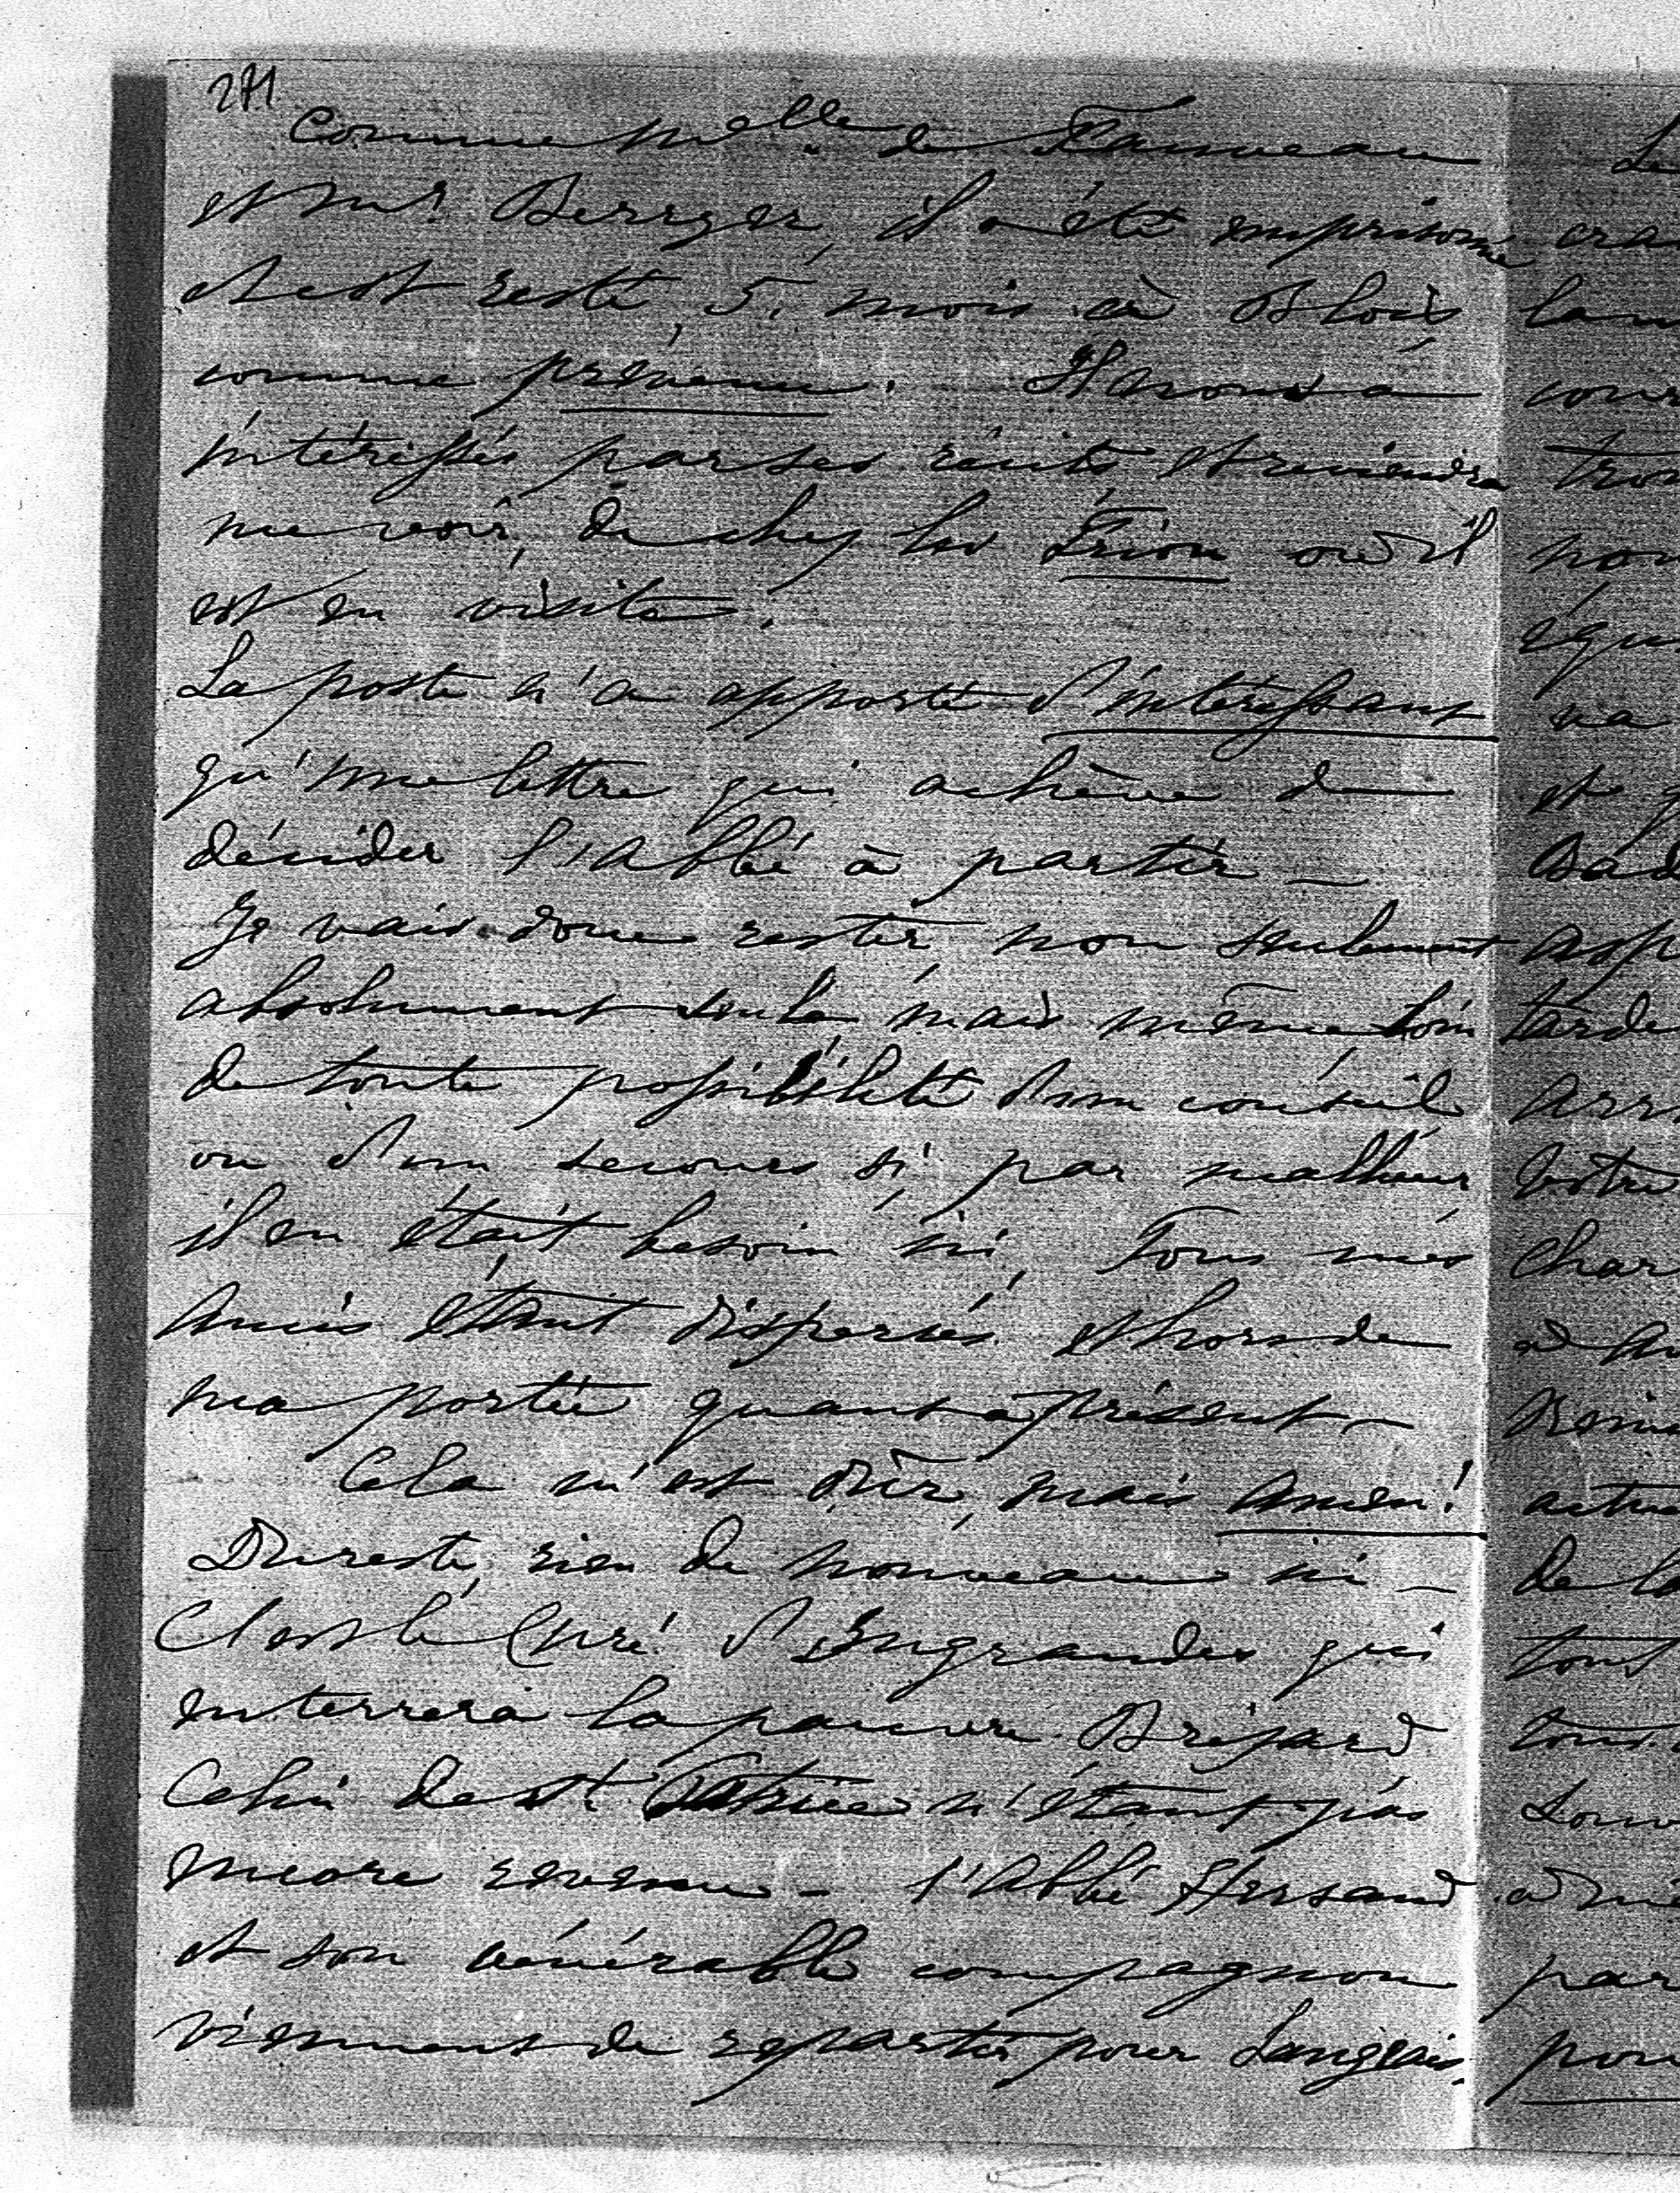 271
Comme Melle de Fauveau
et Mr. Berryer, il a été emprisonné
et est resté, 5, mois à Blois
comme prévenu. Il nous a
intéressés par ses récits et reviendra
me voir, de chez les Frion où il
est en visite.
La poste n'a apporté d'intéressant
qu'une lettre qui achève de
décider l'Abbé à partir _
Je vais donc rester non seulement
absolument seule, mais même loin
de toute possibilité d'un conseil
ou d'un secours si, par malheur
il en était besoin ici, Tous mes
Amis étant dispersés et hors de
ma portée quant à présent _
Cela m'est dur, mais Amen!
Du reste, rien de nouveau ici _
C'est le Curé d'Ingrandes qui
enterrera la pauvre Bréjard
Celui de St. Patrice n'étant pas
encore revenu _ l'Abbé Hersand
et son vénérable compagnon
viennent de repartir pour Langeais.
cra
tro
équ
va
et
Bad
asp
tarde
arr
Votre
Char
à
de la
tout
à
par
pour